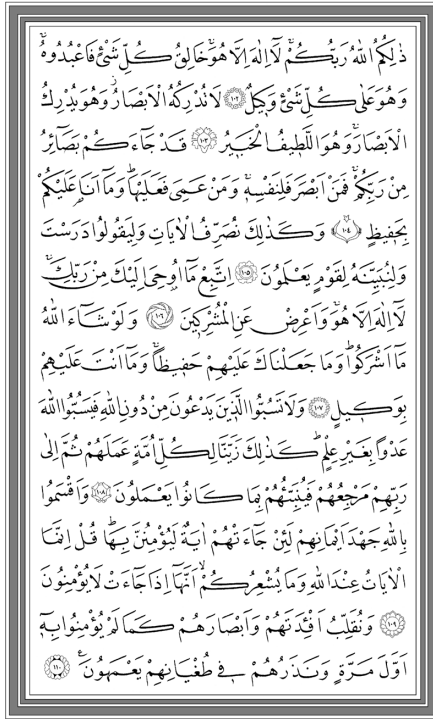 ذٰلِكُمُ اللّٰهُ رَبُّكُمْۚ لَٓا اِلٰهَ اِلَّا هُوَۚ خَالِقُ كُلِّ شَيْءٍ فَاعْبُدُوهُۚ
وَهُوَ عَلٰى كُلِّ شَيْءٍ وَك۪يلٌ ﴿١٠٢﴾ لَا تُدْرِكُهُ الْاَبْصَارُۘ وَهُوَ يُدْرِكُ
الْاَبْصَارَۚ وَهُوَ اللَّط۪يفُ الْخَب۪يرُ ﴿١٠٣﴾ قَدْ جَٓاءَكُمْ بَصَٓائِرُ
مِنْ رَبِّكُمْۚ فَمَنْ اَبْصَرَ فَلِنَفْسِه۪ۚ وَمَنْ عَمِيَ فَعَلَيْهَاۜ وَمَٓا اَنَا۬ عَلَيْكُمْ
بِحَف۪يظٍ ﴿١٠٤﴾ وَكَذٰلِكَ نُصَرِّفُ الْاٰيَاتِ وَلِيَقُولُوا دَرَسْتَ
وَلِنُبَيِّنَهُ لِقَوْمٍ يَعْلَمُونَ ﴿١٠٥﴾ اِتَّبِعْ مَٓا اُو۫حِيَ اِلَيْكَ مِنْ رَبِّكَۚ
لَٓا اِلٰهَ اِلَّا هُوَۚ وَاَعْرِضْ عَنِ الْمُشْرِك۪ينَ ﴿١٠٦﴾ وَلَوْ شَٓاءَ اللّٰهُ
مَٓا اَشْرَكُواۜ وَمَا جَعَلْنَاكَ عَلَيْهِمْ حَف۪يظًاۚ وَمَٓا اَنْتَ عَلَيْهِمْ
بِوَك۪يلٍ ﴿١٠٧﴾ وَلَا تَسُبُّوا الَّذ۪ينَ يَدْعُونَ مِنْ دُونِ اللّٰهِ فَيَسُبُّوا اللّٰهَ
عَدْوًا بِغَيْرِ عِلْمٍۜ كَذٰلِكَ زَيَّنَّا لِكُلِّ اُمَّةٍ عَمَلَهُمْۖ ثُمَّ اِلٰى
رَبِّهِمْ مَرْجِعُهُمْ فَيُنَبِّئُهُمْ بِمَا كَانُوا يَعْمَلُونَ ﴿١٠٨﴾ وَاَقْسَمُوا
بِاللّٰهِ جَهْدَ اَيْمَانِهِمْ لَئِنْ جَٓاءَتْهُمْ اٰيَةٌ لَيُؤْمِنُنَّ بِهَاۜ قُلْ اِنَّمَا
الْاٰيَاتُ عِنْدَ اللّٰهِ وَمَا يُشْعِرُكُمْۙ اَنَّهَٓا اِذَا جَٓاءَتْ لَا يُؤْمِنُونَ
﴿١٠٩﴾ وَنُقَلِّبُ اَفْـِٔدَتَهُمْ وَاَبْصَارَهُمْ كَمَا لَمْ يُؤْمِنُوا بِه۪ٓ
اَوَّلَ مَرَّةٍ وَنَذَرُهُمْ ف۪ي طُغْيَانِهِمْ يَعْمَهُونَ۟ ﴿١١٠﴾